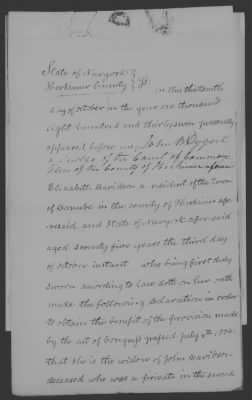 State of Newyork
Herkimer County } SS. on this thirteenth
day of october in the year one thousand
eight hundred and thirty seven personally
appeared before me John B Dygert
a judge of the Court of Common
Pleas of the County of Herkimer aforesaid
Elizabeth Davidson a resident of the town
of Danube in the county of Herkimer afo-
resaid and State of Newyork afore said
aged seventy five years the third day
of october instant who being first duly
sworn according to law doth on her oath
make the following declaration in order
to obtain the benefit of the provision made
by the act of Congress passed july 4th, 1836,
that she is the widow of John Davidson
deceased who was a private in the second